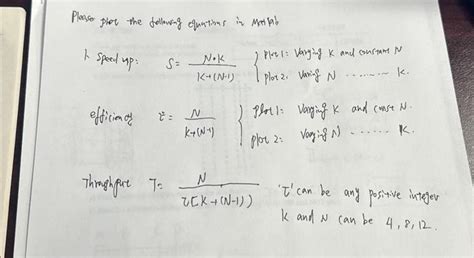 Please plot the following equations in Matlab
1. Speed up: S = N*K / K+(N-1) { plot 1: Varying K and constant N
plot 2: Varing N ........ K.
efficiency E = N / K+(N-1) { plot 1: Varying K and const N.
plot 2: Varying N ........ K.
Throughput T = N / τ[K+(N-1)] 'τ' can be any positive integer
K and N can be 4, 8, 12.